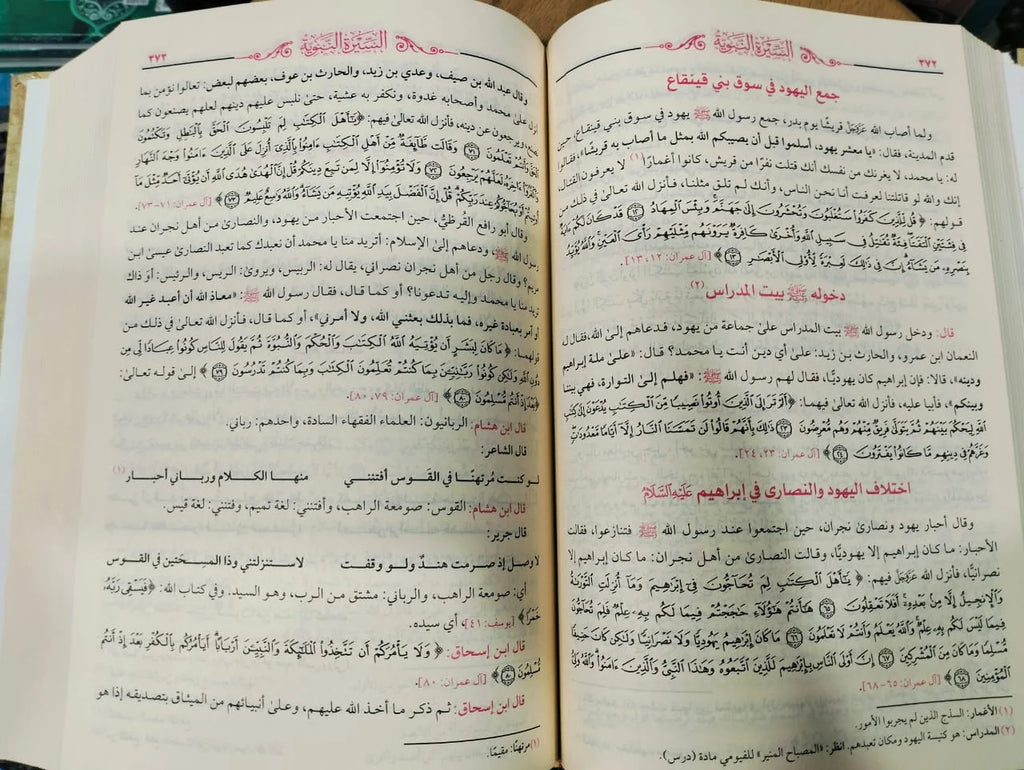 ٣٧٢
السيرة النبوية
جمع اليهود في سوق بني قينقاع
ولما أصاب الله ﷿ قريشًا يوم بدر، جمع رسول الله ﷺ يهود في سوق بني قينقاع، حين
قدم المدينة، فقال: «يا معشر يهود، أسلموا قبل أن يصيبكم الله بمثل ما أصاب به قريشًا»، فقالوا
له: يا محمد، لا يغرنك من نفسك أنك قتلت نفرًا من قريش، كانوا أغمارًا(١) لا يعرفون القتال،
إنك والله لو قاتلتنا لعرفت أنا نحن الناس، وأنك لم تلق مثلنا، فأنزل الله تعالىٰ في ذلك من
قولهم: ﴿قُل لِّلَّذِينَ كَفَرُوا۟ سَتُغْلَبُونَ وَتُحْشَرُونَ إِلَىٰ جَهَنَّمَ وَبِئْسَ الْمِهَادُ ﴿١٢﴾ قَدْ كَانَ لَكُمْ ءَايَةٌ
فِي فِئَتَيْنِ الْتَقَتَا فِئَةٌ تُقَٰتِلُ فِي سَبِيلِ اللَّهِ وَأُخْرَىٰ كَافِرَةٌ يَرَوْنَهُم مِّثْلَيْهِمْ رَأْيَ الْعَيْنِ وَاللَّهُ يُؤَيِّدُ
بِنَصْرِهِ مَن يَشَاءُ إِنَّ فِي ذَٰلِكَ لَعِبْرَةً لِّأُو۟لِي الْأَبْصَٰرِ ﴿١٣﴾﴾ [آل عمران: ١٢، ١٣].
دخوله ﷺ بيت المدراس(٢)
قال: ودخل رسول الله ﷺ بيت المدراس علىٰ جماعة من يهود، فدعاهم إلىٰ الله، فقال ل
النعمان ابن عمرو، والحارث بن زيد: علىٰ أي دين أنت يا محمد؟ قال: «علىٰ ملة إبراهيم
ودينه»، قالا: فإن إبراهيم كان يهوديًّا، فقال لهم رسول الله ﷺ: «فهلم إلىٰ التوراة، فهي بيننا
وبينكم»، فأبيا عليه، فأنزل الله تعالىٰ فيهما: ﴿أَلَمْ تَرَ إِلَى الَّذِينَ أُوتُوا۟ نَصِيبًا مِّنَ الْكِتَٰبِ يُدْعَوْنَ إِلَىٰ كِتَٰبِ
اللَّهِ لِيَحْكُمَ بَيْنَهُمْ ثُمَّ يَتَوَلَّىٰ فَرِيقٌ مِّنْهُمْ وَهُم مُّعْرِضُونَ ﴿٢٣﴾ ذَٰلِكَ بِأَنَّهُمْ قَالُوا۟ لَن تَمَسَّنَا النَّارُ إِلَّا أَيَّامًا مَّعْدُودَٰتٍ
وَغَرَّهُمْ فِي دِينِهِم مَّا كَانُوا۟ يَفْتَرُونَ ﴿٢٤﴾﴾ [آل عمران: ٢٣، ٢٤].
اختلاف اليهود والنصارىٰ في إبراهيم عَلَيْهِ السَّلَامُ
وقال أحبار يهود ونصارىٰ نجران، حين اجتمعوا عند رسول الله ﷺ فتنازعوا، فقالت
الأحبار: ما كان إبراهيم إلا يهوديًّا، وقالت النصارىٰ من أهل نجران: ما كان إبراهيم إلا
نصرانيًّا، فأنزل الله ﷿ فيهم: ﴿يَٰأَهْلَ الْكِتَٰبِ لِمَ تُحَاجُّونَ فِي إِبْرَٰهِيمَ وَمَا أُنزِلَتِ التَّوْرَىٰةُ
وَالْإِنجِيلُ إِلَّا مِن بَعْدِهِ أَفَلَا تَعْقِلُونَ ﴿٦٥﴾ هَٰأَنتُمْ هَٰؤُلَاءِ حَٰجَجْتُمْ فِيمَا لَكُم بِهِ عِلْمٌ فَلِمَ تُحَاجُّونَ
فِيمَا لَيْسَ لَكُم بِهِ عِلْمٌ وَاللَّهُ يَعْلَمُ وَأَنتُمْ لَا تَعْلَمُونَ ﴿٦٦﴾ مَا كَانَ إِبْرَٰهِيمُ يَهُودِيًّا وَلَا نَصْرَانِيًّا وَلَٰكِن كَانَ حَنِيفًا
مُّسْلِمًا وَمَا كَانَ مِنَ الْمُشْرِكِينَ ﴿٦٧﴾ إِنَّ أَوْلَى النَّاسِ بِإِبْرَٰهِيمَ لَلَّذِينَ اتَّبَعُوهُ وَهَٰذَا النَّبِيُّ وَالَّذِينَ ءَامَنُوا۟ وَاللَّهُ وَلِيُّ
الْمُؤْمِنِينَ ﴿٦٨﴾﴾ [آل عمران: ٦٥-٦٨].
(١) الأغمار: السذج الذين لم يجربوا الأمور.
(٢) المدراس: هو كنيسة اليهود ومكان تعبدهم. انظر: «المصباح المنير» للفيومي مادة (درس).
السيرة النبوية
٣٧٣
وقال عبد الله بن صيف، وعدي بن زيد، والحارث بن عوف، بعضهم لبعض: تعالوا نؤمن بما
أنزل علىٰ محمد وأصحابه غدوة، ونكفر به عشية، حتىٰ نلبس عليهم دينهم لعلهم يصنعون كما
نصنع، ويرجعون عن دينه، فأنزل الله تعالىٰ فيهم: ﴿يَٰأَهْلَ الْكِتَٰبِ لِمَ تَلْبِسُونَ الْحَقَّ بِالْبَٰطِلِ وَتَكْتُمُونَ
الْحَقَّ وَأَنتُمْ تَعْلَمُونَ ﴿٧١﴾ وَقَالَت طَّائِفَةٌ مِّنْ أَهْلِ الْكِتَٰبِ ءَامِنُوا۟ بِالَّذِي أُنزِلَ عَلَى الَّذِينَ ءَامَنُوا۟ وَجْهَ النَّهَارِ
وَاكْفُرُوا۟ ءَاخِرَهُ لَعَلَّهُمْ يَرْجِعُونَ ﴿٧٢﴾ وَلَا تُؤْمِنُوا۟ إِلَّا لِمَن تَبِعَ دِينَكُمْ قُلْ إِنَّ الْهُدَىٰ هُدَى اللَّهِ أَن يُؤْتَىٰ أَحَدٌ مِّثْلَ مَا
أُوتِيتُمْ أَوْ يُحَاجُّوكُمْ عِندَ رَبِّكُمْ قُلْ إِنَّ الْفَضْلَ بِيَدِ اللَّهِ يُؤْتِيهِ مَن يَشَاءُ وَاللَّهُ وَٰسِعٌ عَلِيمٌ ﴿٧٣﴾﴾ [آل عمران: ٧١-٧٣].
وقال أبو رافع القُرظيُّ، حين اجتمعت الأحبار من يهود، والنصارىٰ من أهل نجران عند
رسول الله ﷺ، ودعاهم إلىٰ الإسلام: أتريد منا يا محمد أن نعبدك كما تعبد النصارىٰ عيسىٰ ابن
مريم؟ وقال رجل من أهل نجران نصراني، يقال له: الربيس، ويروىٰ: الريس، والرئيس: أوَ ذاك
تريد منا يا محمد وإليه تدعونا؟ أو كما قال، فقال رسول الله ﷺ: «معاذ الله أن أعبد غير الله
أو آمر بعبادة غيره، فما بذلك بعثني الله، ولا أمرني»، أو كما قال، فأنزل الله تعالىٰ في ذلك من
قولهما: ﴿مَا كَانَ لِبَشَرٍ أَن يُؤْتِيَهُ اللَّهُ الْكِتَٰبَ وَالْحُكْمَ وَالنُّبُوَّةَ ثُمَّ يَقُولَ لِلنَّاسِ كُونُوا۟ عِبَادًا لِّي مِن
دُونِ اللَّهِ وَلَٰكِن كُونُوا۟ رَبَّٰنِيِّينَ بِمَا كُنتُمْ تُعَلِّمُونَ الْكِتَٰبَ وَبِمَا كُنتُمْ تَدْرُسُونَ ﴿٧٩﴾﴾ إلىٰ قوله تعالىٰ:
﴿بَعْدَ إِذْ أَنتُم مُّسْلِمُونَ ﴿٨٠﴾﴾ [آل عمران: ٧٩، ٨٠].
قال ابن هشام: الربانيون: العلماء الفقهاء السادة، واحدهم: رباني.
قال الشاعر:
لو كنت مُرتهنًا في القَوس أفتنني منها الكلام ورباني أحبار(١)
قال ابن هشام: القَوس: صومعة الراهب، وأفتنني: لغة تميم، وفتنني: لغة قيس.
قال جرير:
لا وصل إذ صرمت هندٌ ولو وقفت لاستنزلتني وذا المسحَتين في القَوس
أي: صومعة الراهب، والرباني: مشتق من الرب، وهو السيد. وفي كتاب الله: ﴿فَيَسْقِي رَبَّهُ،
خَمْرًا﴾ [يوسف: ٤١]، أي سيده.
قال ابن إسحاق: ﴿وَلَا يَأْمُرَكُمْ أَن تَتَّخِذُوا۟ الْمَلَٰئِكَةَ وَالنَّبِيِّينَ أَرْبَابًا أَيَأْمُرُكُم بِالْكُفْرِ بَعْدَ إِذْ أَنتُم
مُّسْلِمُونَ ﴿٨٠﴾﴾ [آل عمران: ٨٠].
قال ابن إسحاق: ثم ذكر ما أخذ الله عليهم، وعلىٰ أنبيائهم من الميثاق بتصديقه إذا هو
(١) مرتهنًا: مقيمًا.